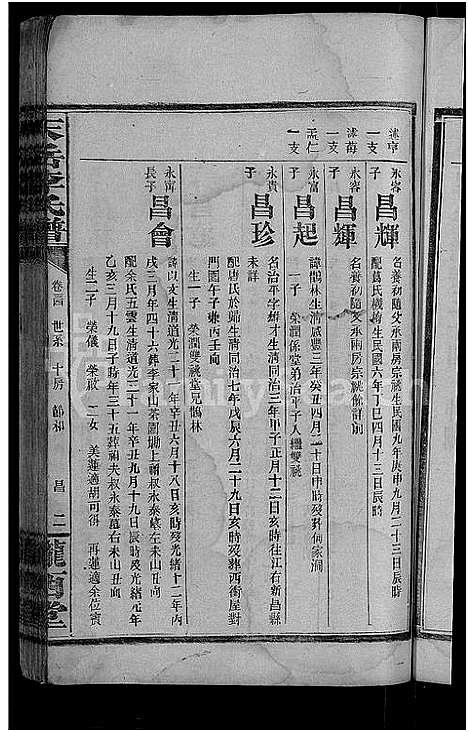 述亭一支
永容子
昌輝
名養初隨父承兩房宗祧生民國九年庚申九月二十三日辰時
配葛氏機梅生民國六年丁巳四月十三日辰時
述海一支
永容子
昌輝
名養初隨父承兩房宗祧餘詳前
孟仁一支
永富子
昌起
諱鵲林生清咸豐三年癸丑四月二十日申時歿葬何家洞
一子 榮潤係堂弟治平子人繼雙祧
永貴子
昌珍
名治平字雄才生清同治三年甲子正月十二日亥時往江右新昌縣
未詳
配唐氏於歸生清同治七年戊辰六月二十九日亥時歿葬西衝屋對
門園午子兼丙壬向
生一子 榮潤雙祧堂兄鵲林
永甯長子
昌會
諱以文生清道光二十一年辛丑六月十八日亥時歿光緒十二年丙
戌三月年四十六葬李家山茶園塅上禰叔永泰墓左未山丑向
配余氏五雲生清道光二十一年辛丑二月二十八日辰時歿光緒元年
乙亥三月十九日子時年三十五葬祔夫叔永泰墓右未山丑向
生二子 榮儀 榮政 二女 美蓮適胡可得 再蓮適余位賓
李氏譜
卷二四 世系 十房 節和
昌 二